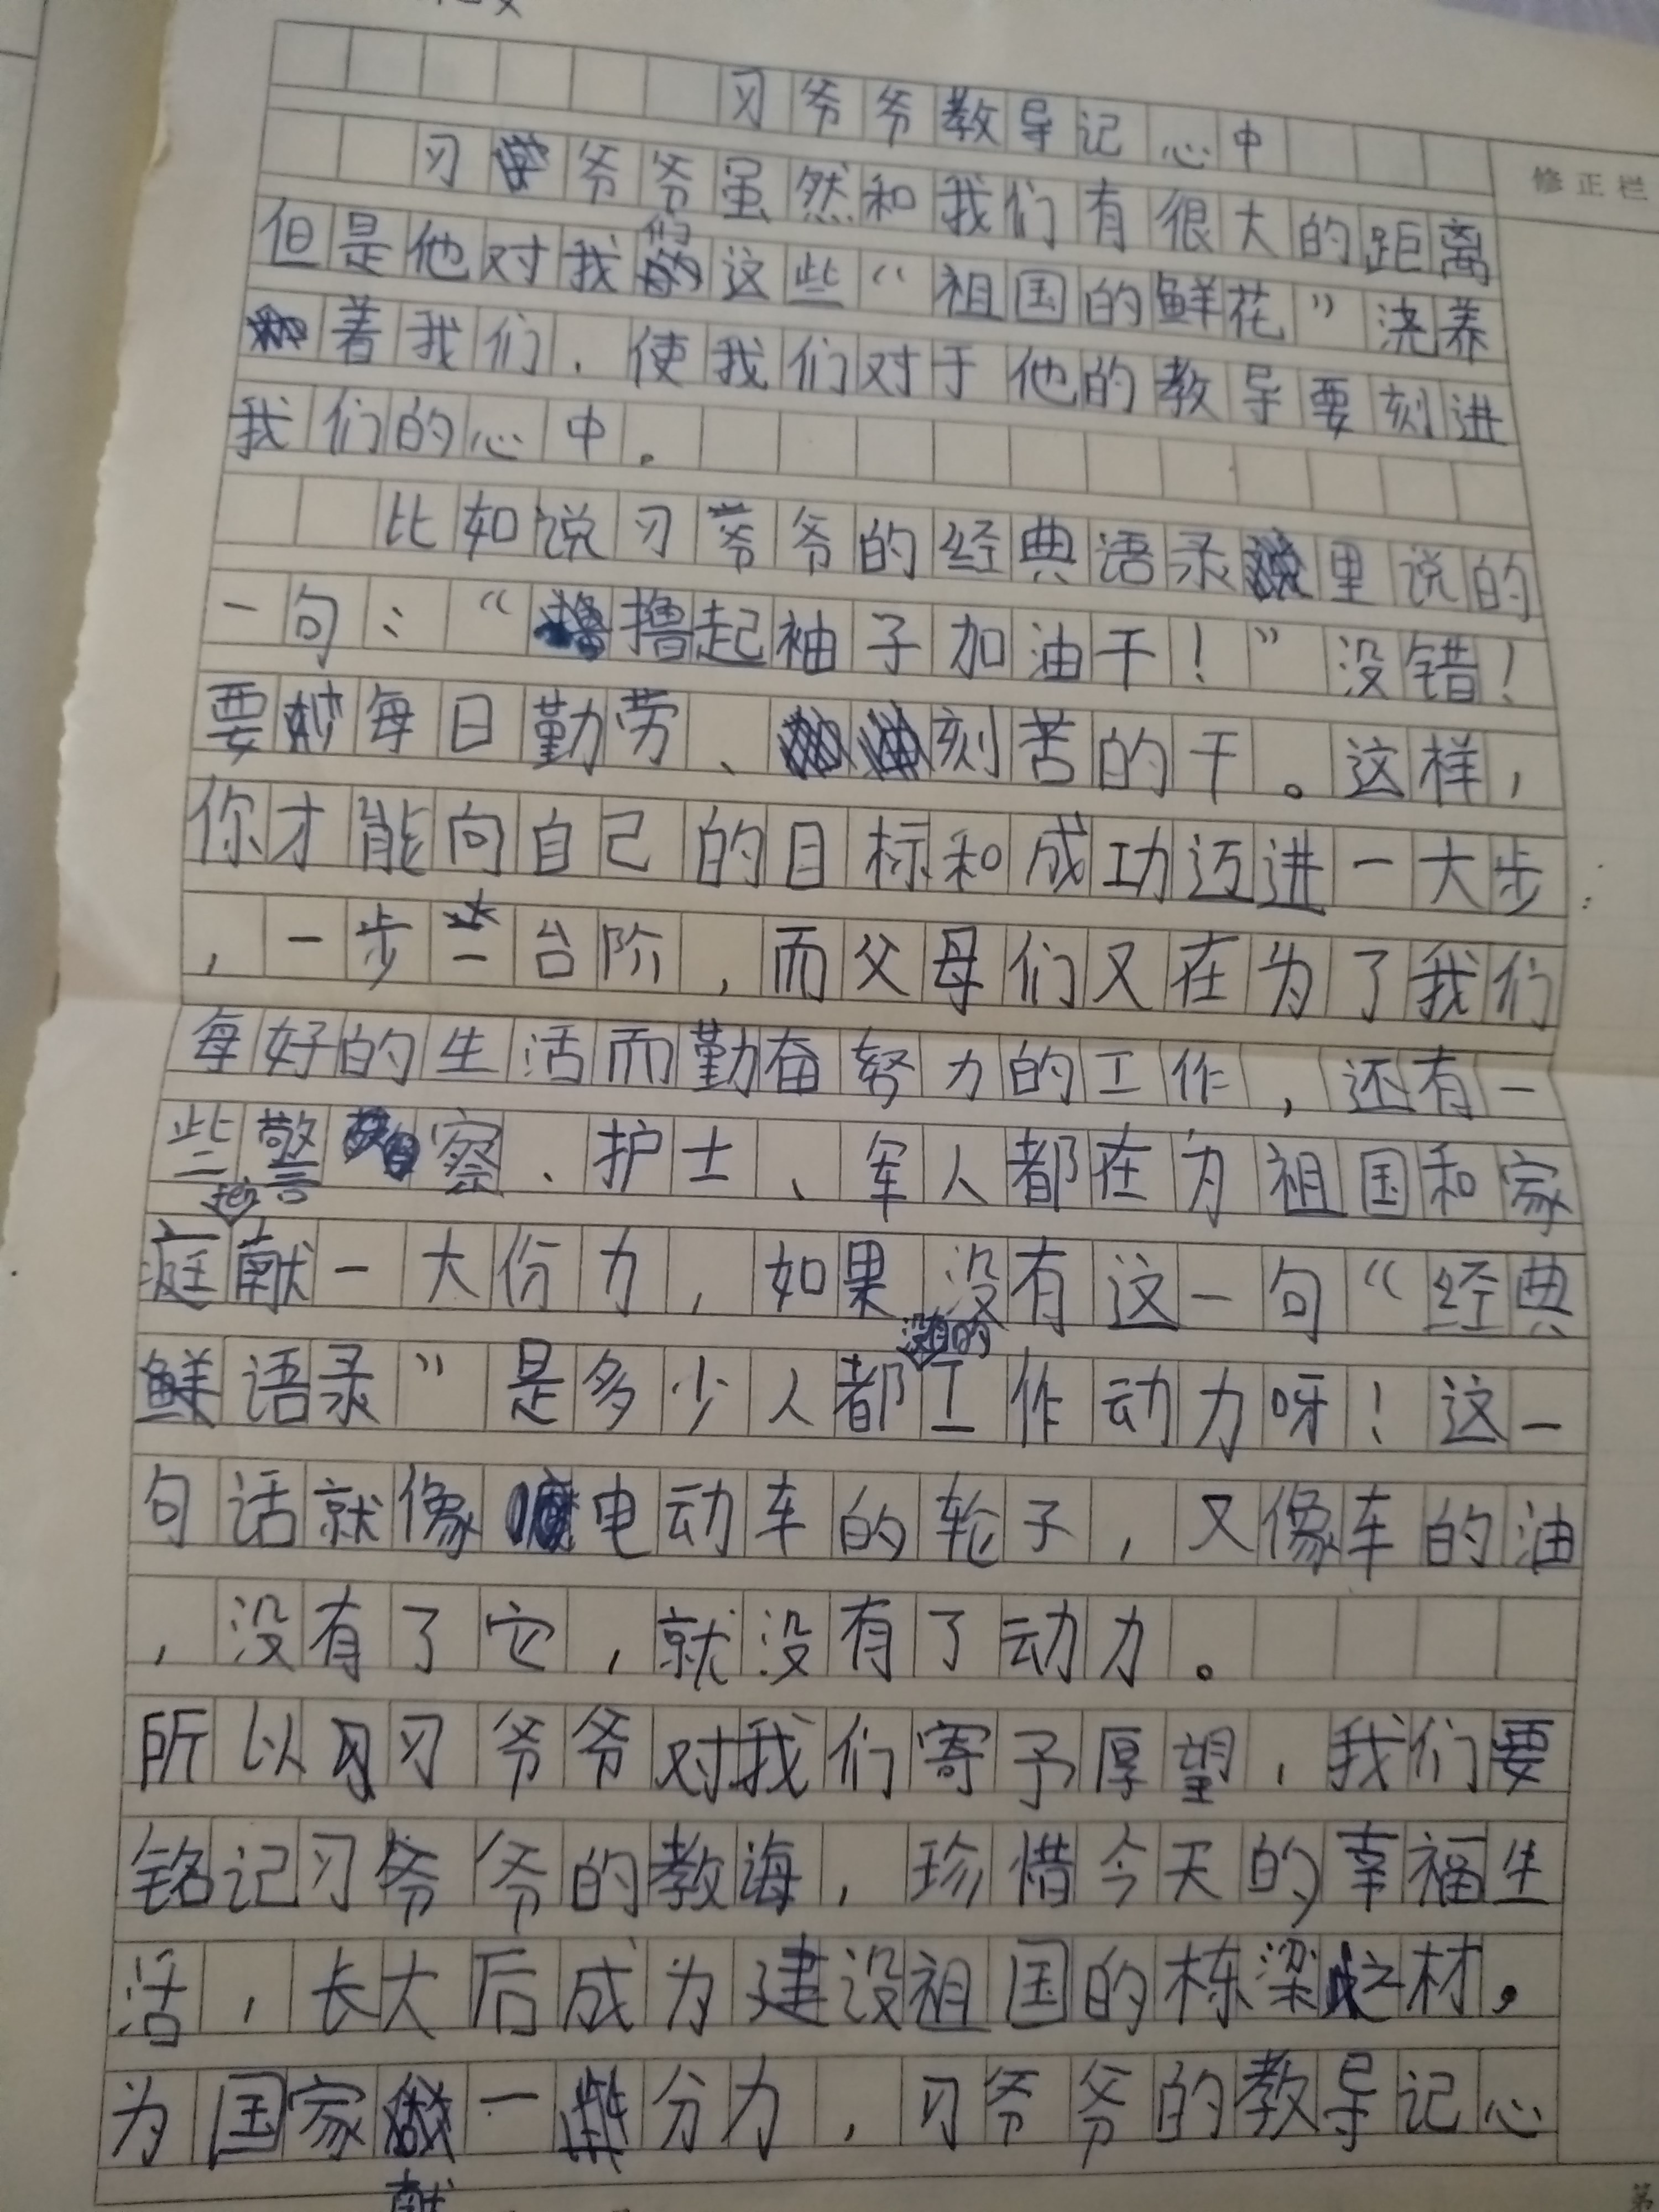 习爷爷教导记心中
修正栏
习爷爷虽然和我们有很大的距离
但是他对我们这些“祖国的鲜花”浇养
着我们,使我们对于他的教导要刻进
我们的心中。
比如说习爷爷的经典语录里说的
一句:“撸起袖子加油干!”没错!
要每日勤劳、刻苦的干。这样,
你才能向自己的目标和成功迈进一大步
,一步一台阶,而父母们又在为了我们
每好的生活而勤奋努力的工作,还有一
些警察、护士、军人都在为祖国和家
庭献一大份力,如果没有这一句“经典
语录”是多少人都没有的工作动力呀!这一
句话就像电动车的轮子,又像车的油
,没有了它,就没有了动力。
所以习爷爷对我们寄予厚望,我们要
铭记习爷爷的教海,珍惜今天的幸福生
活,长大后成为建设祖国的栋梁之材,
为国家献一分力,习爷爷的教导记心
第